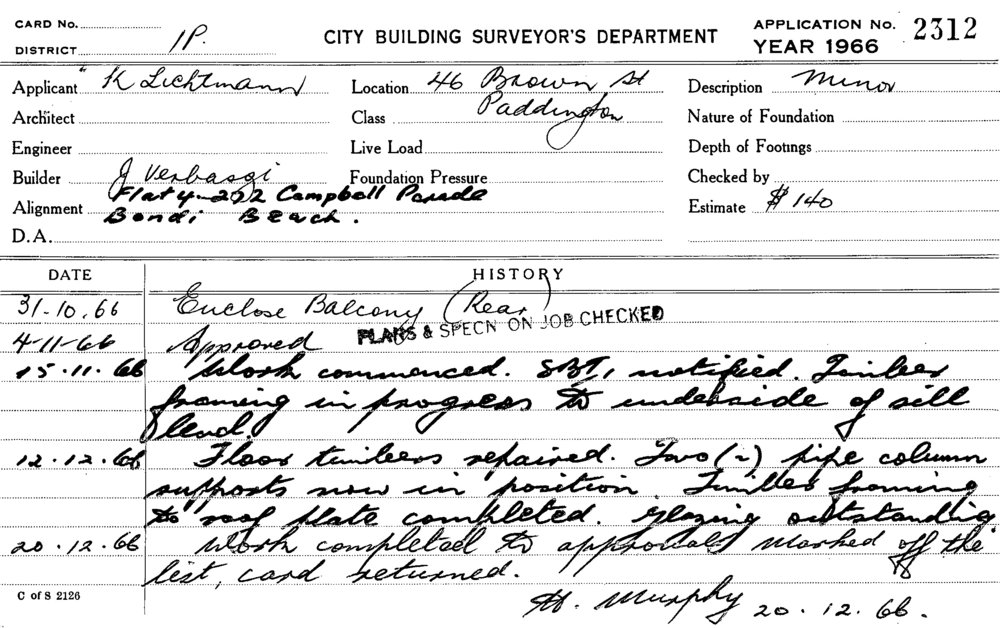 CARD No.
DISTRICT 1P.
CITY BUILDING SURVEYOR'S DEPARTMENT
APPLICATION No. 2312
YEAR 1966
Applicant K Lichtmann
Location 46 Brown St
Paddington
Description Minor
Architect
Class
Nature of Foundation
Engineer
Live Load
Depth of Footings
Builder J Verbasgi
Foundation Pressure
Checked by
Flat 4-222 Campbell Parade
Alignment Bondi Beach.
Estimate $140
D.A.
DATE HISTORY
31-10.66 Enclose Balcony (Rear)
PLANS & SPECN ON JOB CHECKED
4-11-66 Approved
15.11.66 Work commenced. notified. Timber
framing in progress to underside of sill
level.
12.12.66 Floor timbers repaired. Two (2) pipe column
supports now in position. Timber framing
to roof plate completed. Glazing outstanding
20.12.66 Work completed to approval marked off the
list, card returned.
C of S 2126
H. Murphy 20.12.66.